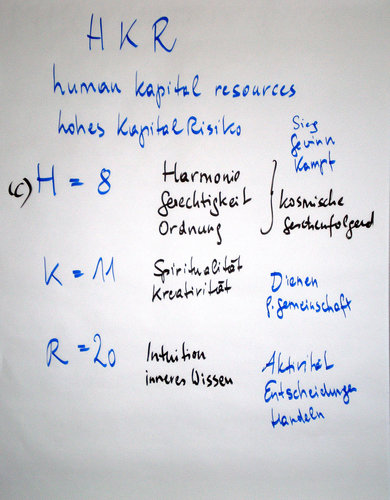 HKR
human kapital resources
hohes Kapital Risiko
Sieg
Gewinn
Kampf
(c) H = 8
Harmonie
Gerechtigkeit
Ordnung
kosmische
K = 11
Spiritualität
Kreativität
Dienen
R = 20
Intuition
inneres Wissen
Aktivität
Entscheidungen
Handeln